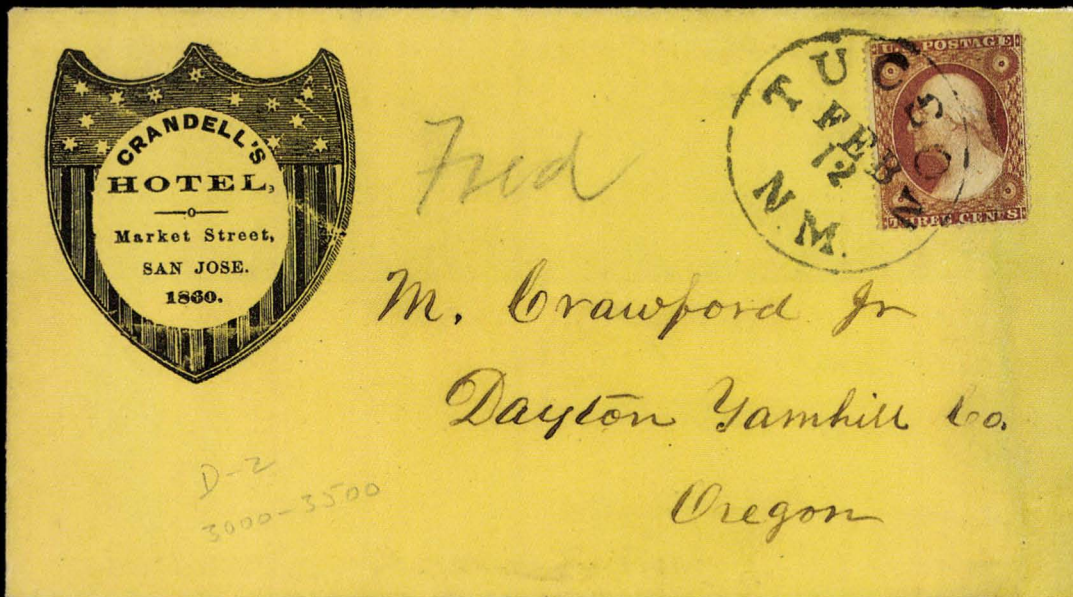 CRANDELL'S
HOTEL,
Market Street,
SAN JOSE.
1860.
Fred
TUCSON
FEB
12
N.M.
U.S. POSTAGE
THREE CENTS
M. Crawford Jr
Dayton Yamhill Co.
Oregon
D-2
3000-3500